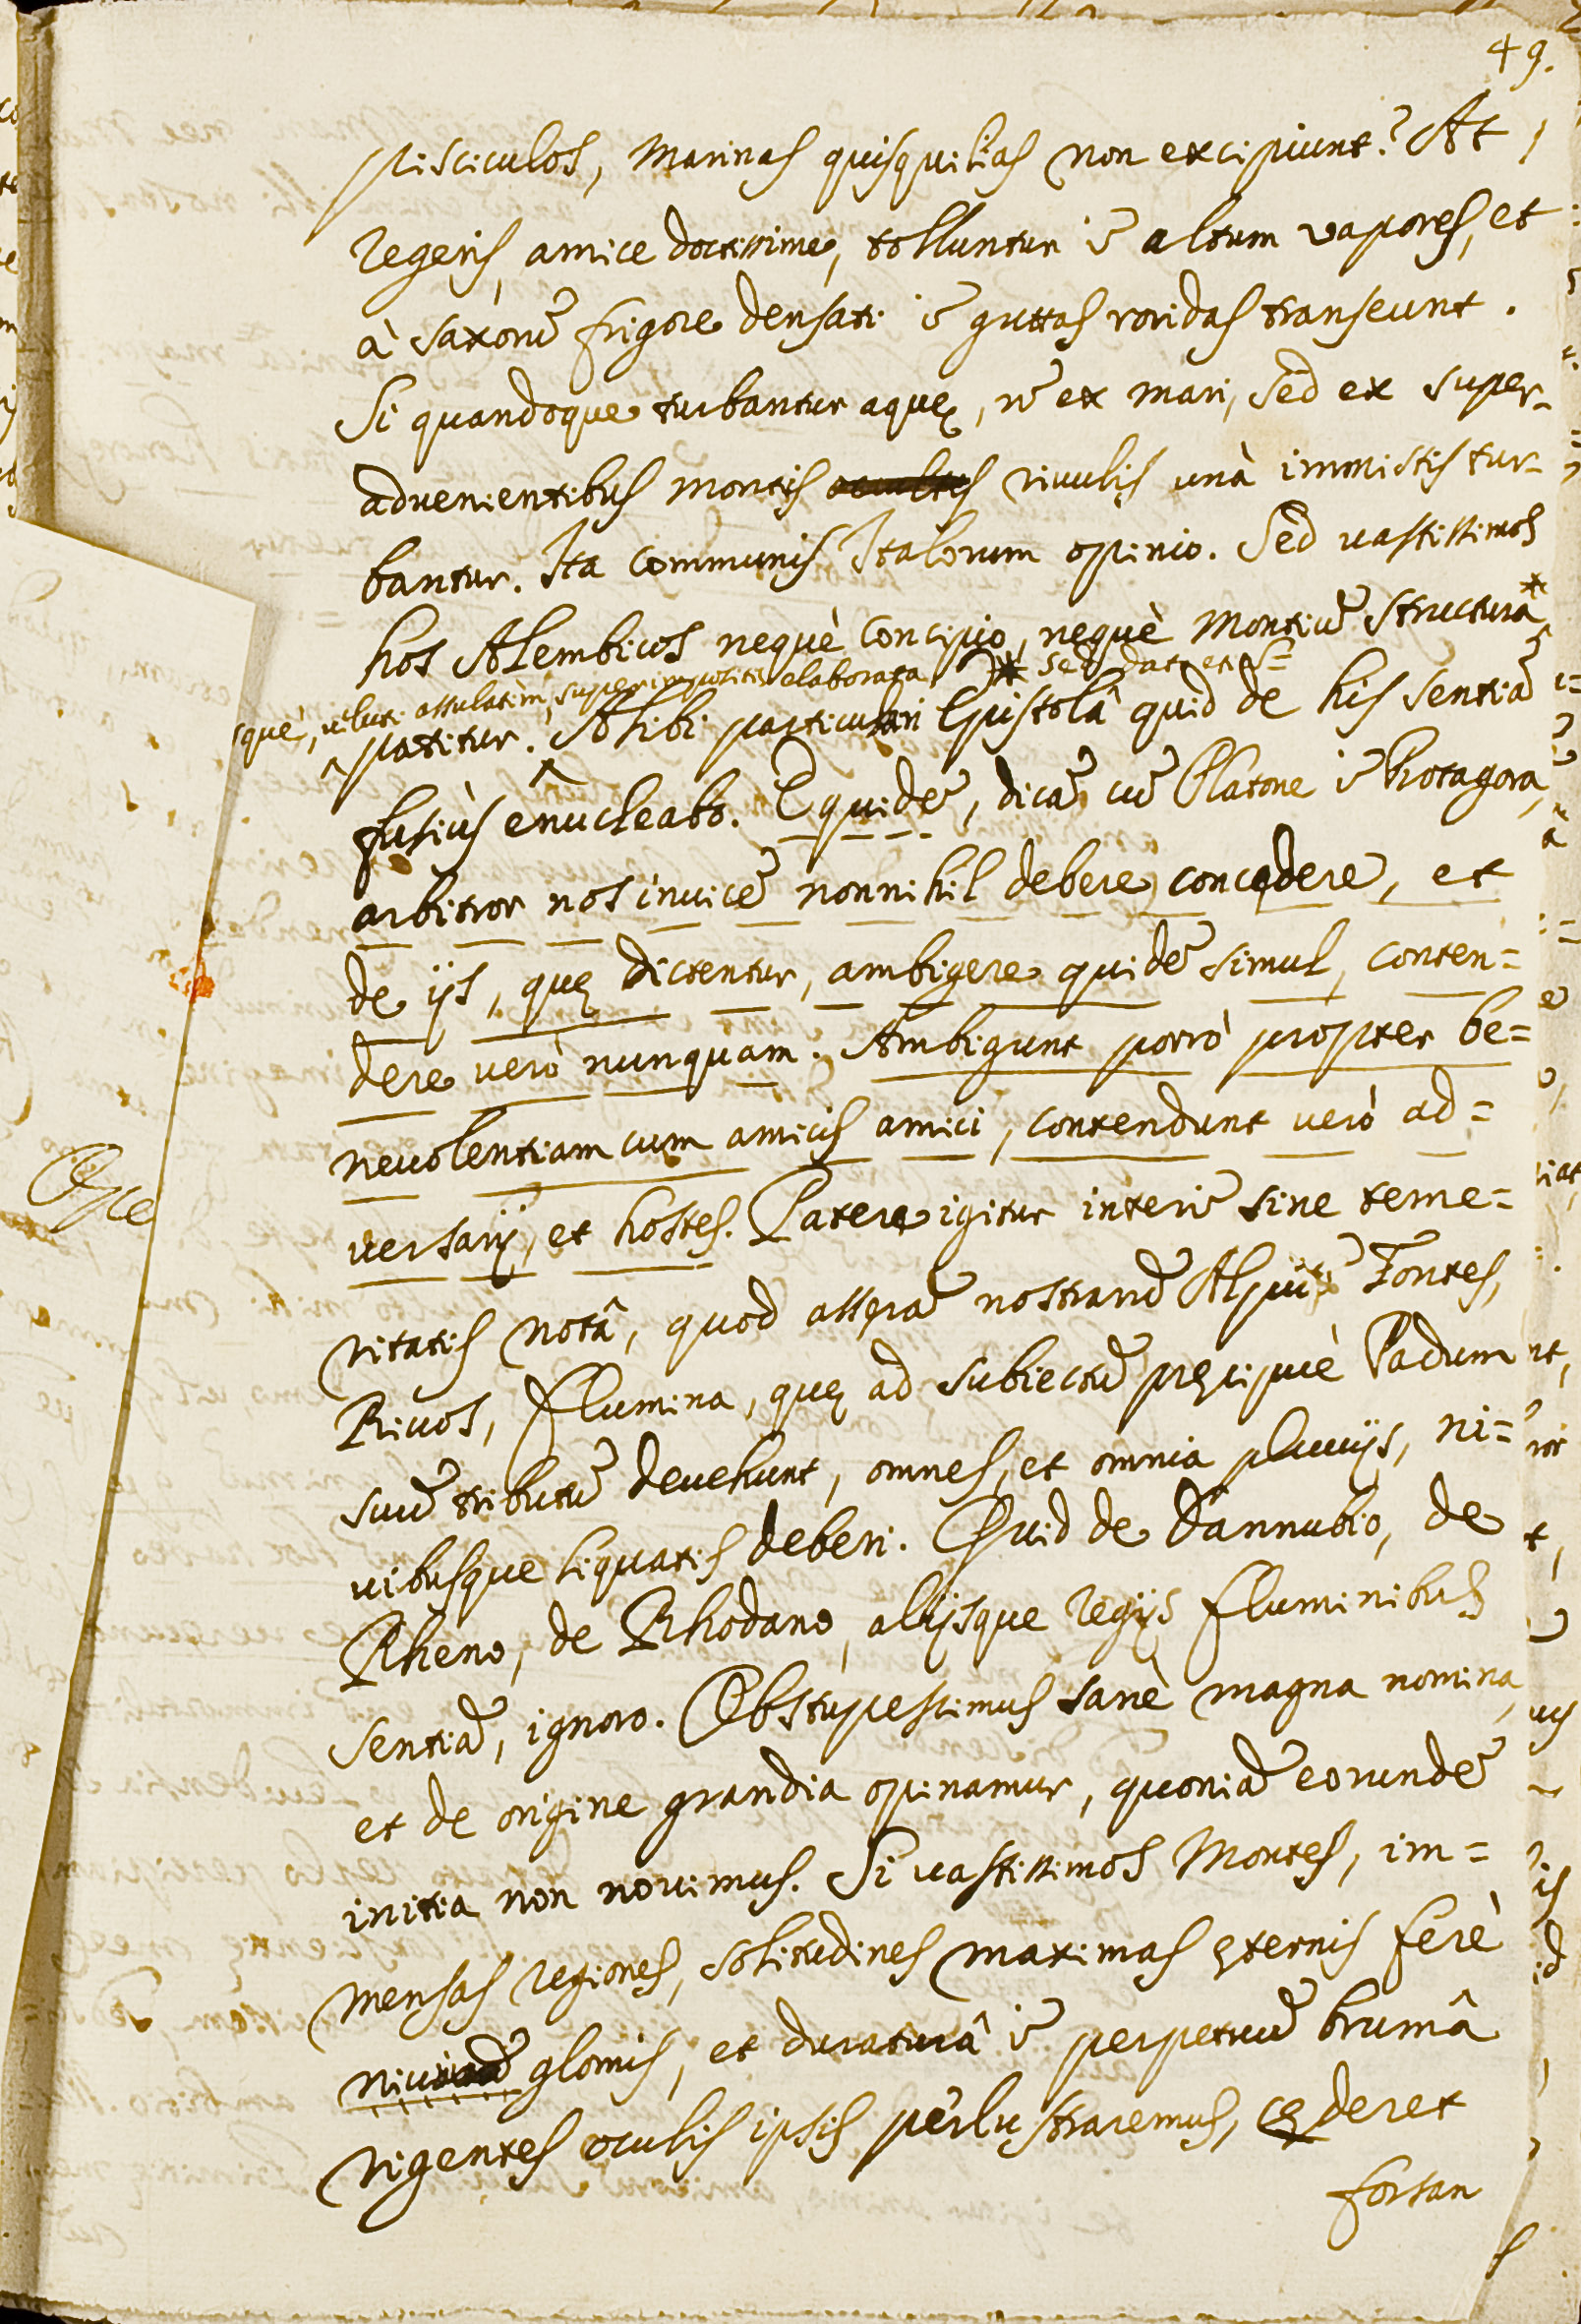 49.
pisciculos, marinas quisquilias non excipiunt? At
regeris, amice doctissime, tolluntur ĩ altum vapores, et
à saxorũ frigore densati ĩ guttas roridas transeunt.
Si quandoque turbantur aquę, nõ ex mari, sed ex super-
advenientibus montis rivulis unà immistis tur-
bantur. Ita communis Italorum opinio. Sed vastissimos
hos Alembicos nequè concipio, nequè Montiũ structura *
* sed data et
sque, veluti assulatim, superimpositis elaborata
patitur. Alibi particulari Epistolâ quid de his sentiã
fusiùs enucleabo. Equidẽ, dicã cũ Platone ĩ Protagora,
arbitror nos invicẽ nonnihil debere concedere, et
de ijs, quę dictentur, ambigere quidẽ simul, conten=
dere verò nunquam. Ambigunt porrò propter be=
nevolentiam cum amicis amici, contendunt verò ad=
versarij, et hostes. Patere igitur interĩ sine teme=
ritatis notâ, quod asserã nostrarũ Alpiũ Fontes,
Rivos, Flumina, quę ad subiectũ pręcipuè Padum
suũ tributũ devehunt, omnes, et omnia pluvijs, ni=
vibusque liquatis deberi. Quid de Dannubio, de
Rheno, de Rhodano, alijsque regijs fluminibus
sentiã, ignoro. Obstupescimus sanè magna nomina,
et de origine grandia opinamur, quoniã eorundẽ
initia non novimus. Si vastissimos Montes, im=
mensas regiones, solitudines maximas ęternis ferè
glomis, et duraturâ ĩ perpetuũ brumâ
rigentes oculis ipsis perlustraremus, cęderet
forsan